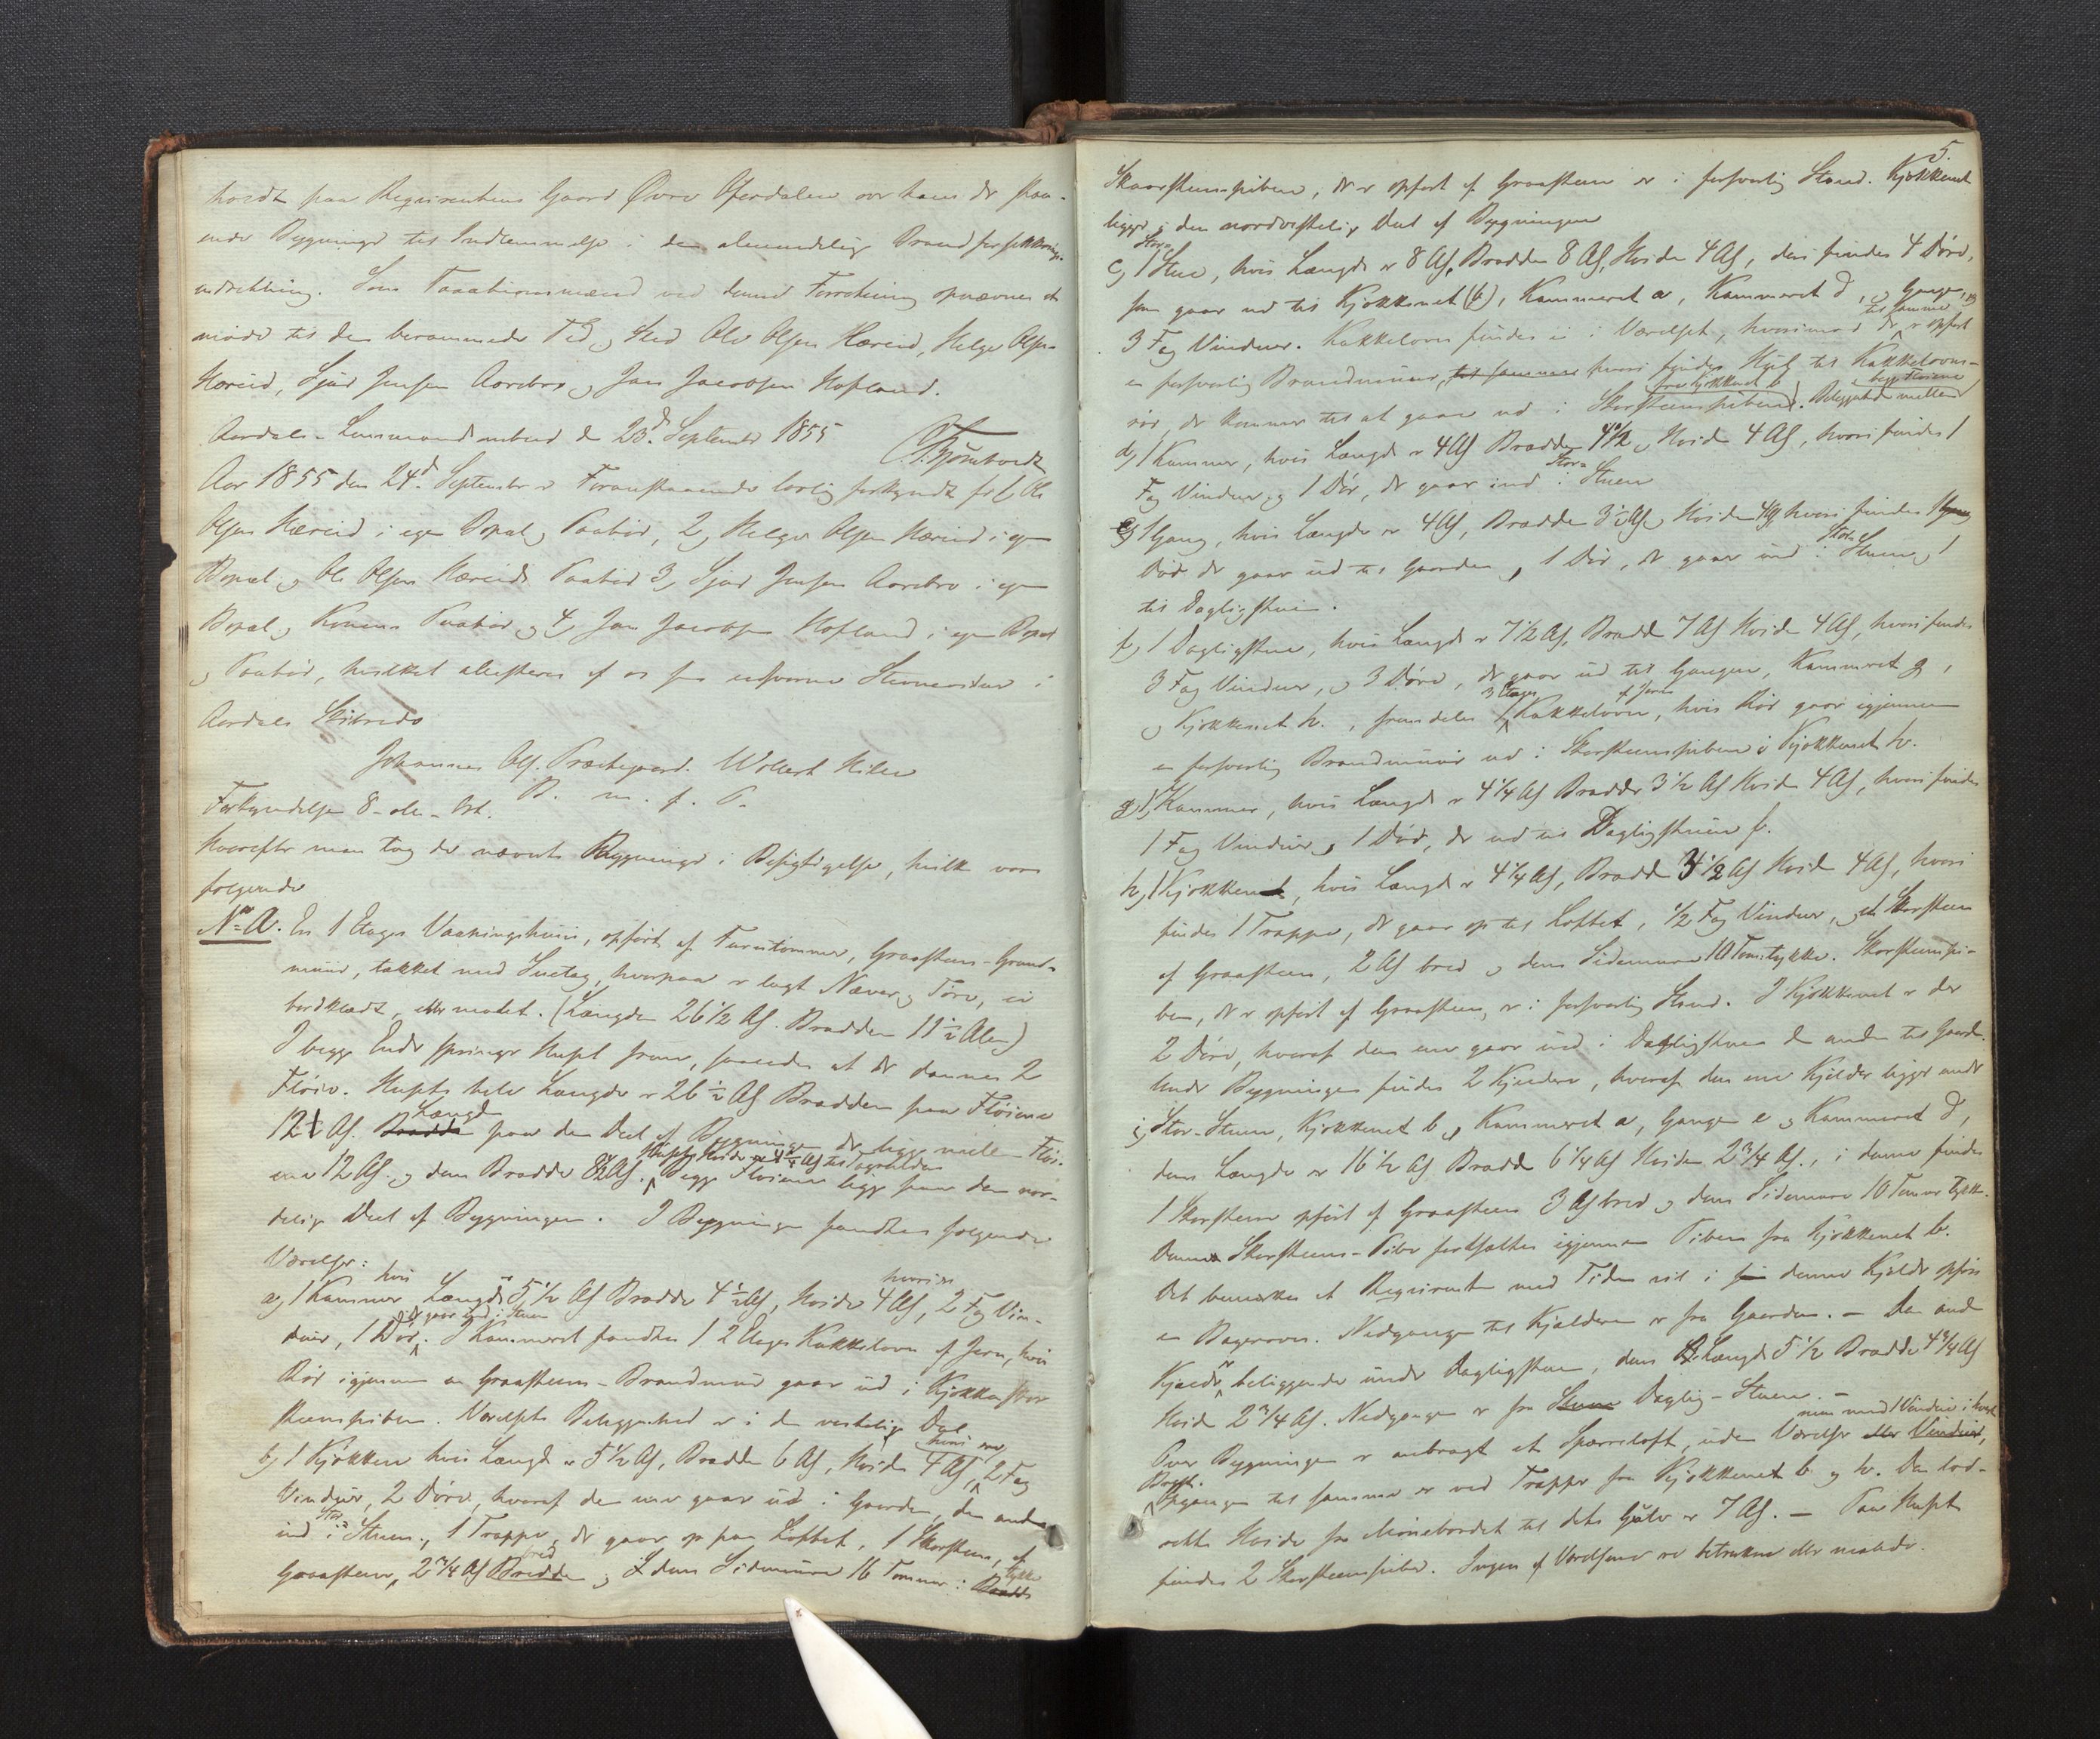 holdt paa Requirentens Gaard Øvre Ofredalen over hans der staa-
ende Bygninger til Indlemmelse i den almindelige Brandforsikkrings-
indretning. Som Taxationsmænd ved denne Forretning opnævnes at
møde til den berammede Tid og Sted Ole Olsen Hæreid, Helge Olsen
Hæreid, Sjur Jensen Aarebro og Jan Jacobsen Hofland.
Aardals-Lensmandsombud d 23d. September 1855
Aar 1855 den 24d. September er Foranstaaende lovlig forkyndt for 1, Ole
Olsen Hæreid i egen Bopæl og Paahør, 2, Helge Olsen Hæreid i egen
Bopæl og Ole Olsen Hæreids Paahør 3, Sjur Jensen Aarebro i egen
Bopæl og Konens Paahør og 4, Jan Jacobsen Hofland i egen Bopæl
og Paahør, hvilket attesteres af os som eedsvorne Stevnevidner i
Aardals Skibrede
Johannes Ols. Præstegaard. Wollert Hiler
B. m. f. P.
Forkyndelsen 8- ole- Ort.
Hvorefter man tog de nævnte Bygninger i Besigtigelse, hvilke vare
følgende
No A. En 1 Etages Vaaningshuus, opført af Furetømmer, Graasteens-Grund-
muur, takket med Suetag, hvorpaa er lagt Næver og Törv, ei
bordklædt, eller malet. (Længden 26 1/2 Al. Bredden 11 1/2 Alen)
I begge Ender springer Huset frem, saaledes at der dannes 2
Fløie. Husets hele Længde er 26 1/2 Al Bredden paa Fløiene
12 Al. Bredde Længde paa den Deel af Bygningen der ligger mellem Fløi-
ene 12 Al. og dens Bredde 8 1/2 Al. Begge Fløiene ligge paa den nor-
delige Deel af Bygningen. I Bygningen fandtes følgende
Værelser:
a, 1 Kammer hvis Længde er 5 1/2 Al Bredde 4 1/2 Al, Høide 4 Al, hvori er 2 Fag Vin-
duer, 1 Dør, der gaar ind i Stuen. I Kammeret fandtes 1 2 Etages Kakkelovn af Jern, hvis
Rör igjennem en Graasteens-Brandmuur gaar ud i Kjøkkenskor-
steenspiben. Værelsets Beliggenhed er i den vestlige Del
b, 1 Kjøkken hvis Længde er 5 1/2 Al, Bredde 6 Al, Høide 4 Al, hvori er 2 Fag
Vinduer, 2 Döre, hvoraf den ene gaar ud i Gaarden, den anden
ind i Stor-Stuen, 1 Trappe, der gaar op paa Loftet, 1 Skorsteen, af
Graasteen, 2 3/4 Al Bredde bred og dens Sidemure 16 Tommer i Bredde tykke
5.
Skaarsteenspiben, der er opført af Graasteen er i forsvarlig Stand. Kjøkkenet
ligger i den nordvestlige Deel af Bygningen
c, 1 Stor-Stue, hvis Længde er 8 Al, Bredden 8 Al, Høiden 4 Al, deri findes 4 Döre,
som gaar ud til Kjøkkenet (b), Kammeret a, Kammeret d, og Gangen, og
3 Fag Vinduer. Kakkelovn findes ei i Værelset, hvorimod der til samme er opført
en forsvarlig Brandmuur, til samme hvori findes Hul til Kakkelovns-
rör, der kommer til at gaae ud i Skorsteenspiben fra Kjøkkenet b. Beliggende mellem begge Fløiene
d, 1 Kammer, hvis Længde er 4 Al Bredden 4 1/2 og Høide 4 Al, hvori findes 1
Fag Vinduer og 1 Dör, der gaar ind i Stor-Stuen
e, 1 Gang, hvis Længde er 4 Al, Bredden 3 1/2 Al og Høiden 4 Al hvori findes 1
Dör der gaar ud til Gaarden, 1 Dör, der gaar ind i Stor-Stuen og 1
til Dagligstuen.
f, 1 Dagligstue, hvis Længde er 7 1/2 Al, Bredde 7 Al Høide 4 Al, hvori findes
3 Fag Vinduer, og 3 Döre, der gaar ud til Gangen, Kammeret g,
og Kjøkkenet h., fremdeles 1 3 Etages Kakkelovn af Jern, hvis Rör gaar igjennem
en forsvarlig Brandmuur ud i Skorsteenspiben i Kjøkkenet h.
g, 1 Kammer, hvis Længde er 4 1/4 Al Bredde 3 1/2 Al Høide 4 Al, hvori findes
1 Fag Vinduer og 1 Dör, der ud til Dagligstuen f.
h, 1 Kjøkken, hvis Længde er 4 1/4 Al, Bredde 3 1/2 Al Høide 4 Al, hvori
findes 1 Trappe, der gaar op til Loftet, 1/2 Fag Vinduer, og et Skorsteen
af Graasteen, 2 Al bred og dens Sidemure 10 Tom. tykke. Skorsteenspi-
ben, der er opført af Graasteen, er i forsvarlig Stand. I Kjøkkenet er der
2 Döre, hvoraf den ene gaar ind i Dagligstuen d anden til Gaarden.
Under Bygningen findes 2 Kjeldere, hvoraf den ene Kjelder ligger under
i, Stor-Stuen, Kjøkkenet b, Kammeret a, Gangen e og Kammeret d,
dens Længde er 16 1/2 Al Bredde 6 1/4 Al Høiden 2 3/4 Al., i denne findes
1 Skorsteen opført af Graasteen 3 Al bred og dens Sidemure 10 Tommer tykke.
Denne Skorsteens-Pibe fortsættes igjennem Piben fra Kjøkkenet b.
Det bemærkes at Requirenten med Tiden vil i denne Kjelder opføre
en Bagerovn. Nedgangen til Kjelderen er fra Gaarden. - Den anden
Kjelder er beliggende under Dagligstuen, dens Længde 5 1/2 Bredde 4 3/4 Al
Høide 2 3/4 Al. Nedgangen er fra Stuen Daglig-Stuen. -
Over Bygningen er anbragt et Sparreloft, uden Værelser eller Vinduer, men med 1 Vindue i hver
Opgangen til samme er ved Trapper fra Kjøkkenet b og h. Den lod-
rette Høide fra Mönebordet til dets Gulv er 7 Al. - Paa Huset
findes 2 Skorsteenspiber. Ingen af Værelserne ere betrukne eller malede.